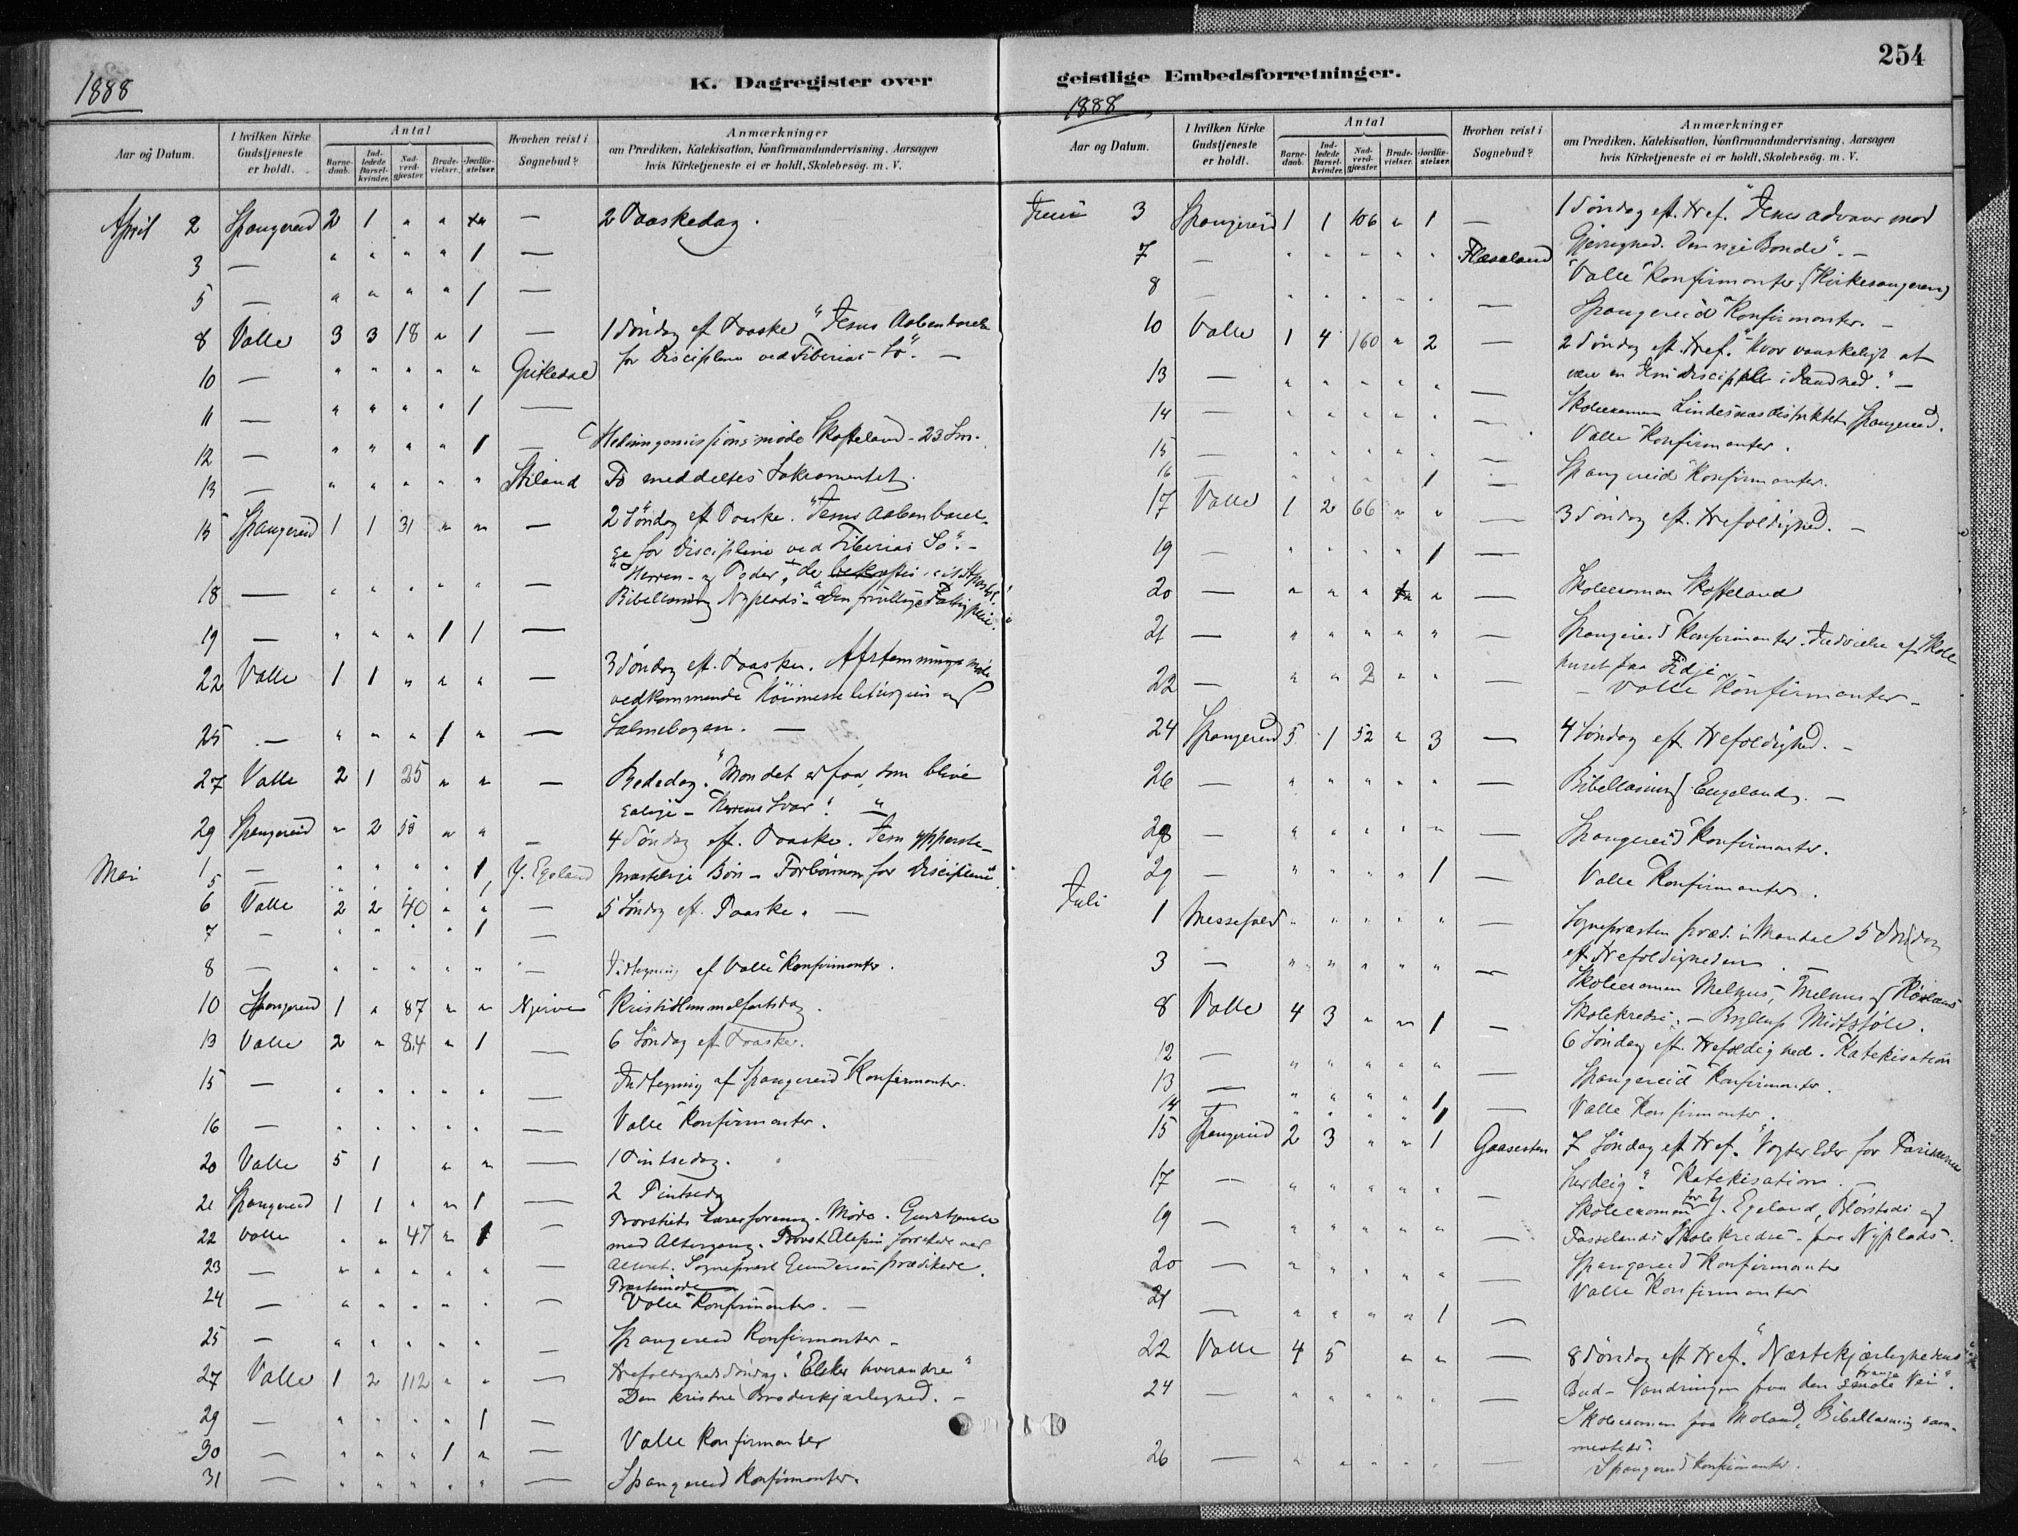 254
1888
K. Dagregister over
geistlige Embedsforretninger.
1888
Aar og Datum.
I hvilken Kirke Gudstjeneste er holdt.
Antal
Barne-daab.
Ind-ledede Barsel-kvinder.
Nad-verd-gjester.
Brude-vielser.
Jordfæ-stelser.
Hvorhen reist i Sognebud?
Anmærkninger
om Prædiken, Katekisation, Konfirmandundervisning, Aarsagen
hvis Kirketjeneste ei er holdt, Skolebesøg. m. V.
April 2 Spangereid 2 1 " " — 2 Paaskedag.
3 — " " " " 1 —
5 — " " " " 1 —
8 Valle 3 3 18 " 1 — 1 Søndag eft Paaske "Jesus Aabenbarelse
for Disciplene ved Tiberias-Sö". —
10 — " " " " "
11 — " " " " 1 —
12 — " " " " 1 —
13 — " " " " " Stiland To meddeltes Sakramentet.
15 Spangereid 1 1 31 " " — 2 Søndag eft Paaske. "Jesus Aabenbarel-
se for Disciplene ved Tiberias Sö". —
18 — " " " " " — Bibellæsning Nyplads
19 — " " " 1 1 —
22 Valle 1 1 " " " — 3 Søndag eft. Paaske. Afstemningsmøde
vedkommende Höimesse liturgien og
Salmebogen. —
25 — " " " 1 " —
27 Valle 2 1 25 " " — Bededag. "Mon det er faa, som blive
salige - Herrens Svar". "
29 Spangereid " 2 58 " " — 4 Søndag eft. Paaske. Jesu ypperste-
præstelige Bön - Forbönnen for Disciplene
Mai 1 — " " " " 1 Y. Egeland
5
6 Valle 2 2 40 " " — 5 Søndag eft. Paaske. —
7 — " " " " 1 —
8 — " " " " " — Indtegning af Valle Konfirmanter.
10 Spangereid 1 " 87 " " Njerve Kristi Himmelfartsdag.
13 Valle 2 " 84 " 1 — 6 Søndag eft Paaske.
15 — " " " " " — Indtegning af Spangereid Konfirmanter.
16 — " " " " " — Valle Konfirmanter.
20 Valle 5 1 " " — 1 Pintsedag.
21 Spangereid 1 1 " " 1 — 2 Pintsedag
22 Valle " " 47 " 1 — Provstiets Lærerforening. Møde. Gudstjeneste
med Altergang. Provst forrettede ved
23 — " " " " " — Alteret. Sognepræst Gundersen prædikede.
Præstemøde —
24 — " " " " " — Valle Konfirmanter. —
25 — " " " " " — Spangereid Konfirmanter -
27 Valle 1 2 112 " " — Trefoldighedssöndag. "Elsker hverandre"
Den kristne Broderkjærlighed. —
29 — " " " " 1 —
30 — " " " 1 " — Valle Konfirmanter
31 — " " " " " — Spangereid Konfirmanter.
Aar og Datum.
I hvilken Kirke Gudstjeneste er holdt.
Antal
Barne-daab.
Ind-ledede Barsel-kvinder.
Nad-verd-gjester.
Brude-vielser.
Jordfæ-stelser.
Hvorhen reist i Sognebud?
Anmærkninger
om Prædiken, Katekisation, Konfirmandundervisning, Aarsagen
hvis Kirketjeneste ei er holdt, Skolebesög. m. V.
Juni 3 Spangereid 1 1 106 " 1 — 1 Søndag eft. Tref. "Jesus advarer mod
Gjerrighed. Den rige Bonde". —
7 — " " " " "
8 — " " " " " — "Valle" Konfirmanter (Kirkesangeren)
Spangereid Konfirmanter. —
10 Valle 1 4 160 " 2 — 2 Søndag eft. Tref. "Hvor vanskeligt at
være en Jesu Discipel i Sandhed." —
13 — " " " " " —
14 — " " " " " — Skoleexamen Lindesnæsdistriktet Spangereid.
15 — " " " " " — Valle Konfirmanter.
16 — " " " " 1 — Spangereid Konfirmanter.
17 Valle 1 2 66 " " — 3 Søndag eft. Trefoldighed. —
19 — " " " " 1 —
20 — " " " " — Skoleexamen Skofteland
21 — " " " " " — Spangereid Konfirmanter. Indvielse af Skole
huset paa Fidje.
22 — " " 2 " " — Valle Konfirmanter -
24 Spangereid 5 1 52 " 3 — 4 Søndag eft Trefoldighed. —
26 — " " " " " — Bibellæsning Egeland. —
28 — " " " " " — Spangereid Konfirmanter.
29 — " " " " 1 — Valle Konfirmanter.
Juli 1 Messefald " " " " " — Sognepræsten præd. i Mandal 5 Søndag
eft Trefoldigheden. —
3 — " " " " " —
8 Valle 4 3 " " 1 — 6 Søndag eft. Trefoldighed. Katekisation
12 — " " " " " — Spangereid Konfirmanter.
13 — " " " " 1 — Valle Konfirmanter.
14 — " " " " 1
15 Spangereid 2 3 " " 1 Gaasesten 7 Søndag eft Tref. "Vogter Eder for Farisæernes
Surdeig". Katekisation. —
17 — " " " " " — Skoleexamen for Y. Egeland,
19 — " " " " " — Skolekredse - paa Nyplads.
20 — " " " " " — Spangereid Konfirmanter
21 — " " " " 1 — Valle Konfirmanter
22 Valle 4 5 " " — 8 Søndag eft Tref. "Næstekjærlighedens
Bud - Vandringen paa den trange Vei".
24 — " " " " " — Skoleexamen paa Moland, Bibellæsning sam-
mesteds.
26 — " " " " — Spangereid Konfirmanter.